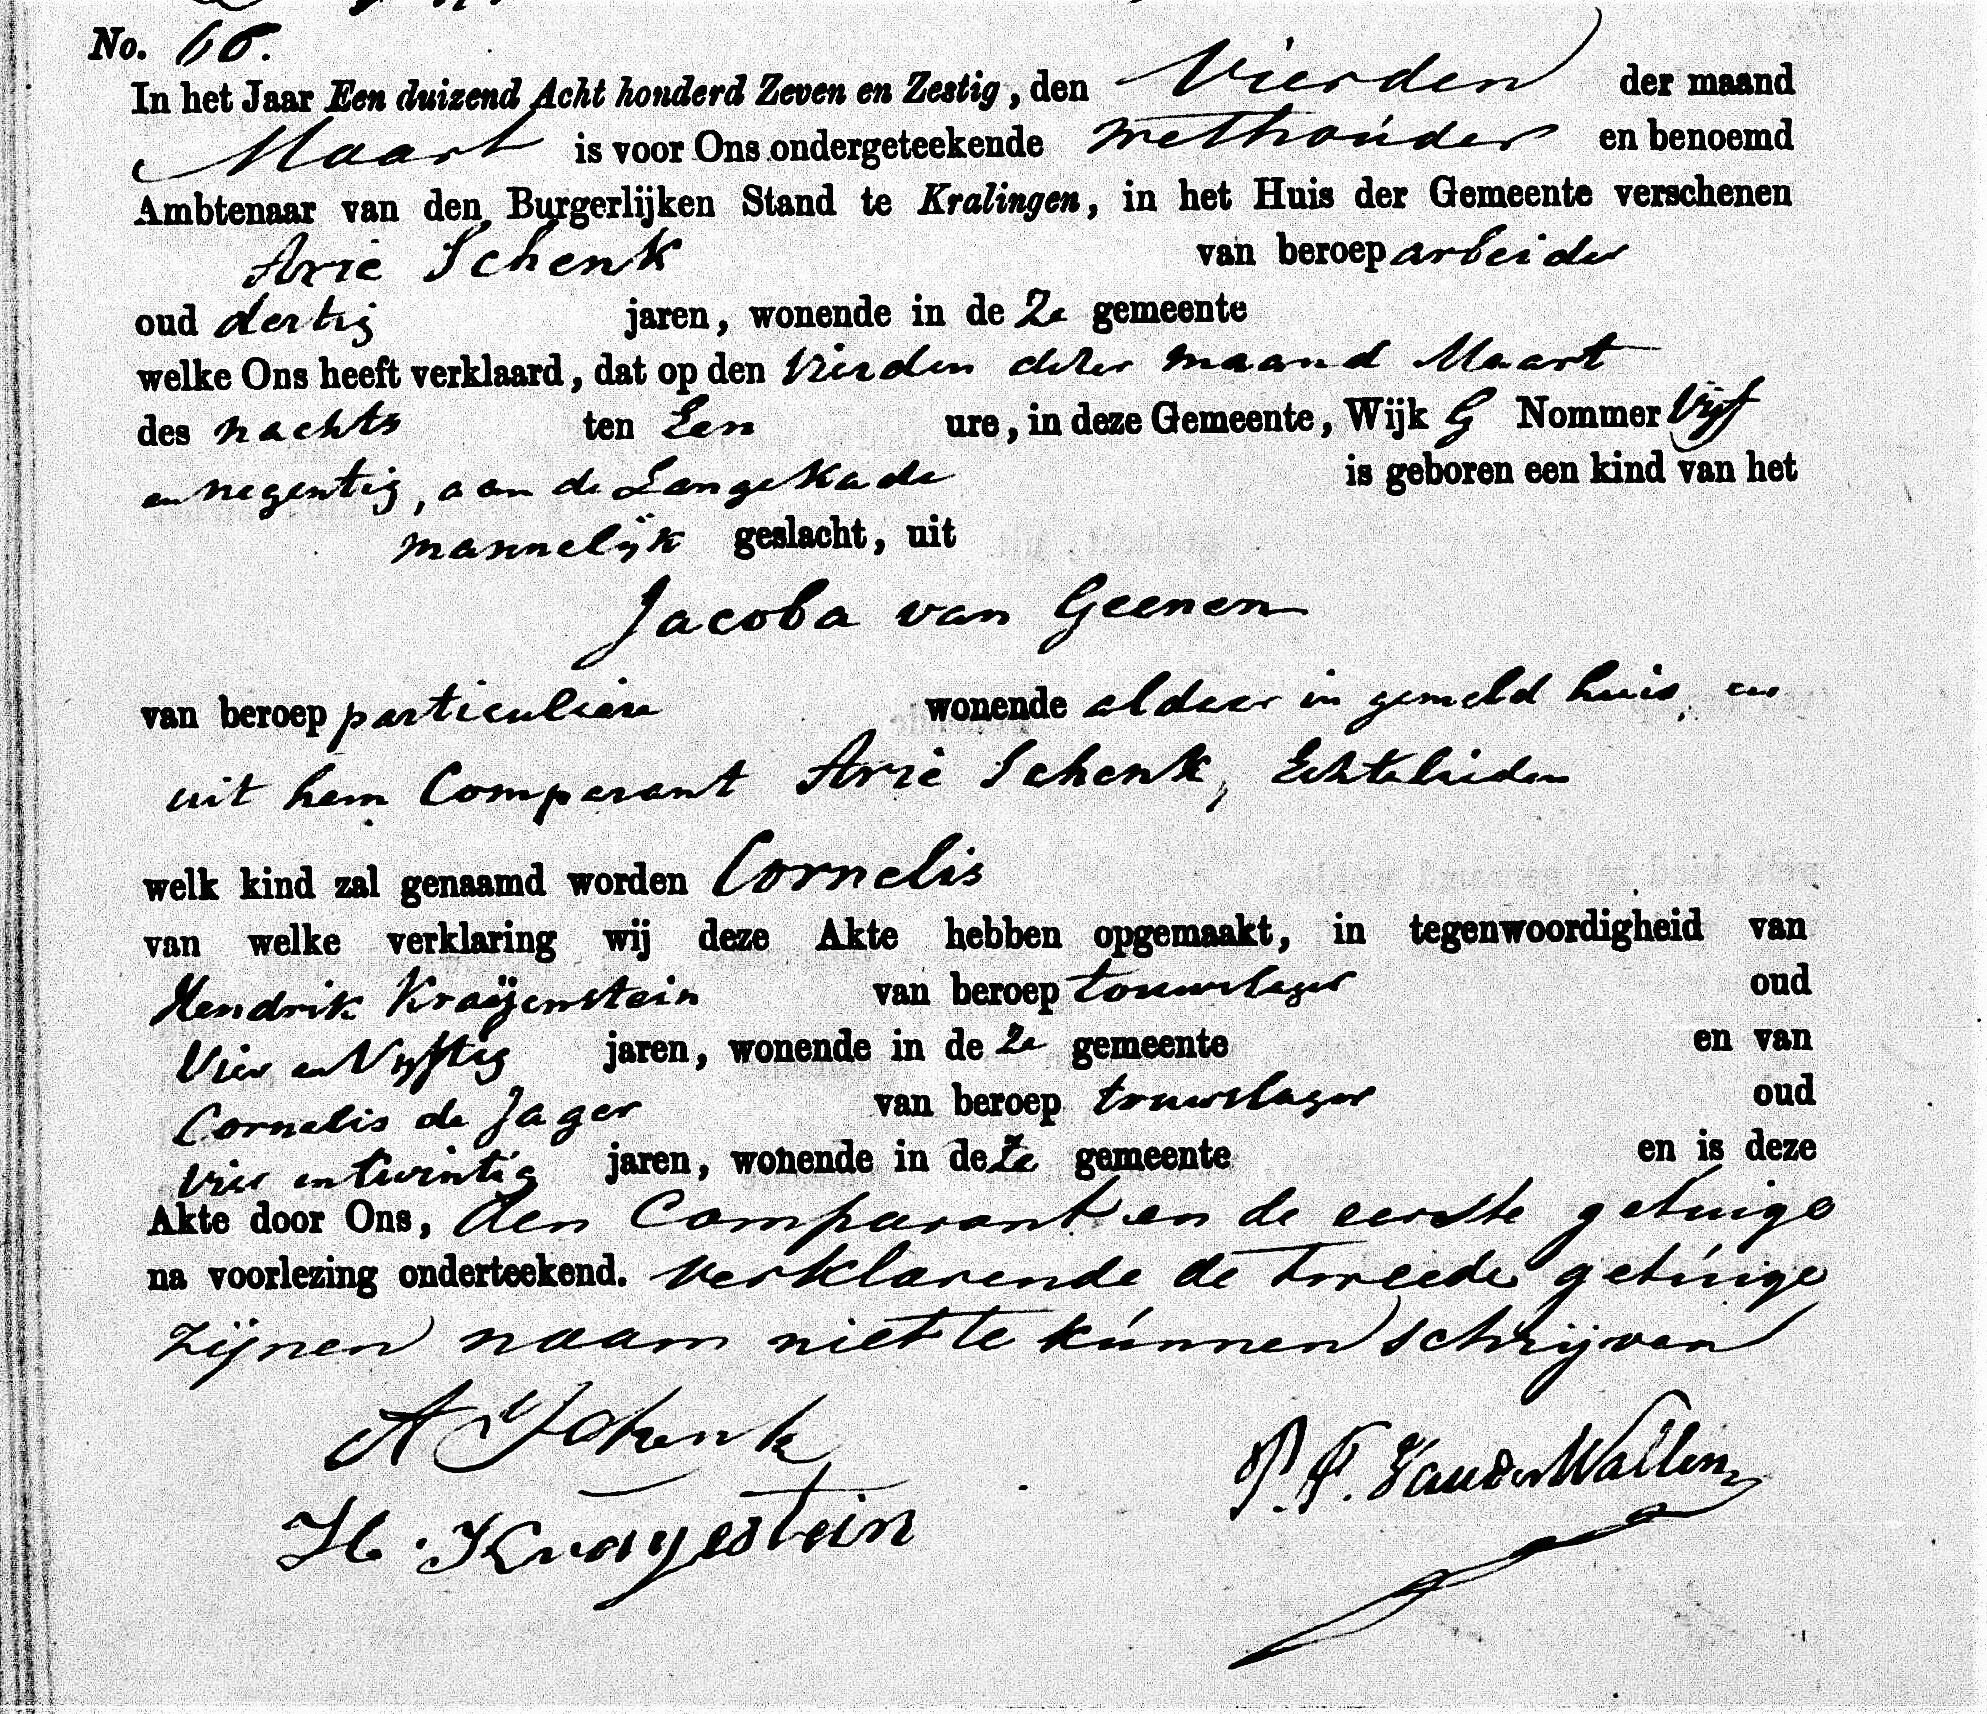 No. 66.
In het Jaar Een duizend Acht honderd Zeven en Zestig, den Vierden der maand
Maart is voor Ons ondergeteekende Wethouder en benoemd
Ambtenaar van den Burgerlijken Stand te Kralingen, in het Huis der Gemeente verschenen
Arie Schenk van beroep arbeider
oud dertig jaren, wonende in de Ze gemeente
welke Ons heeft verklaard, dat op den Vierden dezer maand Maart
des nachts ten Een ure, in deze Gemeente, Wijk G Nommer Vijf
en negentig, aan de Langekade is geboren een kind van het
mannelijk geslacht, uit
Jacoba van Geenen
van beroep particuliere wonende aldaar in gemeld huis, en
uit hem Comparant Arie Schenk, Echtelieden
welk kind zal genaamd worden Cornelis
van welke verklaring wij deze Akte hebben opgemaakt, in tegenwoordigheid van
Hendrik Kraijenstein van beroep touwslager oud
Vier en Vijftig jaren, wonende in de Ze gemeente en van
Cornelis de Jager van beroep touwslager oud
Vier en twintig jaren, wonende in de Ze gemeente en is deze
Akte door Ons, den Comparant en de eerste getuige
na voorlezing onderteekend. verklarende de tweede getuige
zijnen naam niet te kunnen schrijven
A Schenk
P. F. Van der Wallen
H. Krayestein